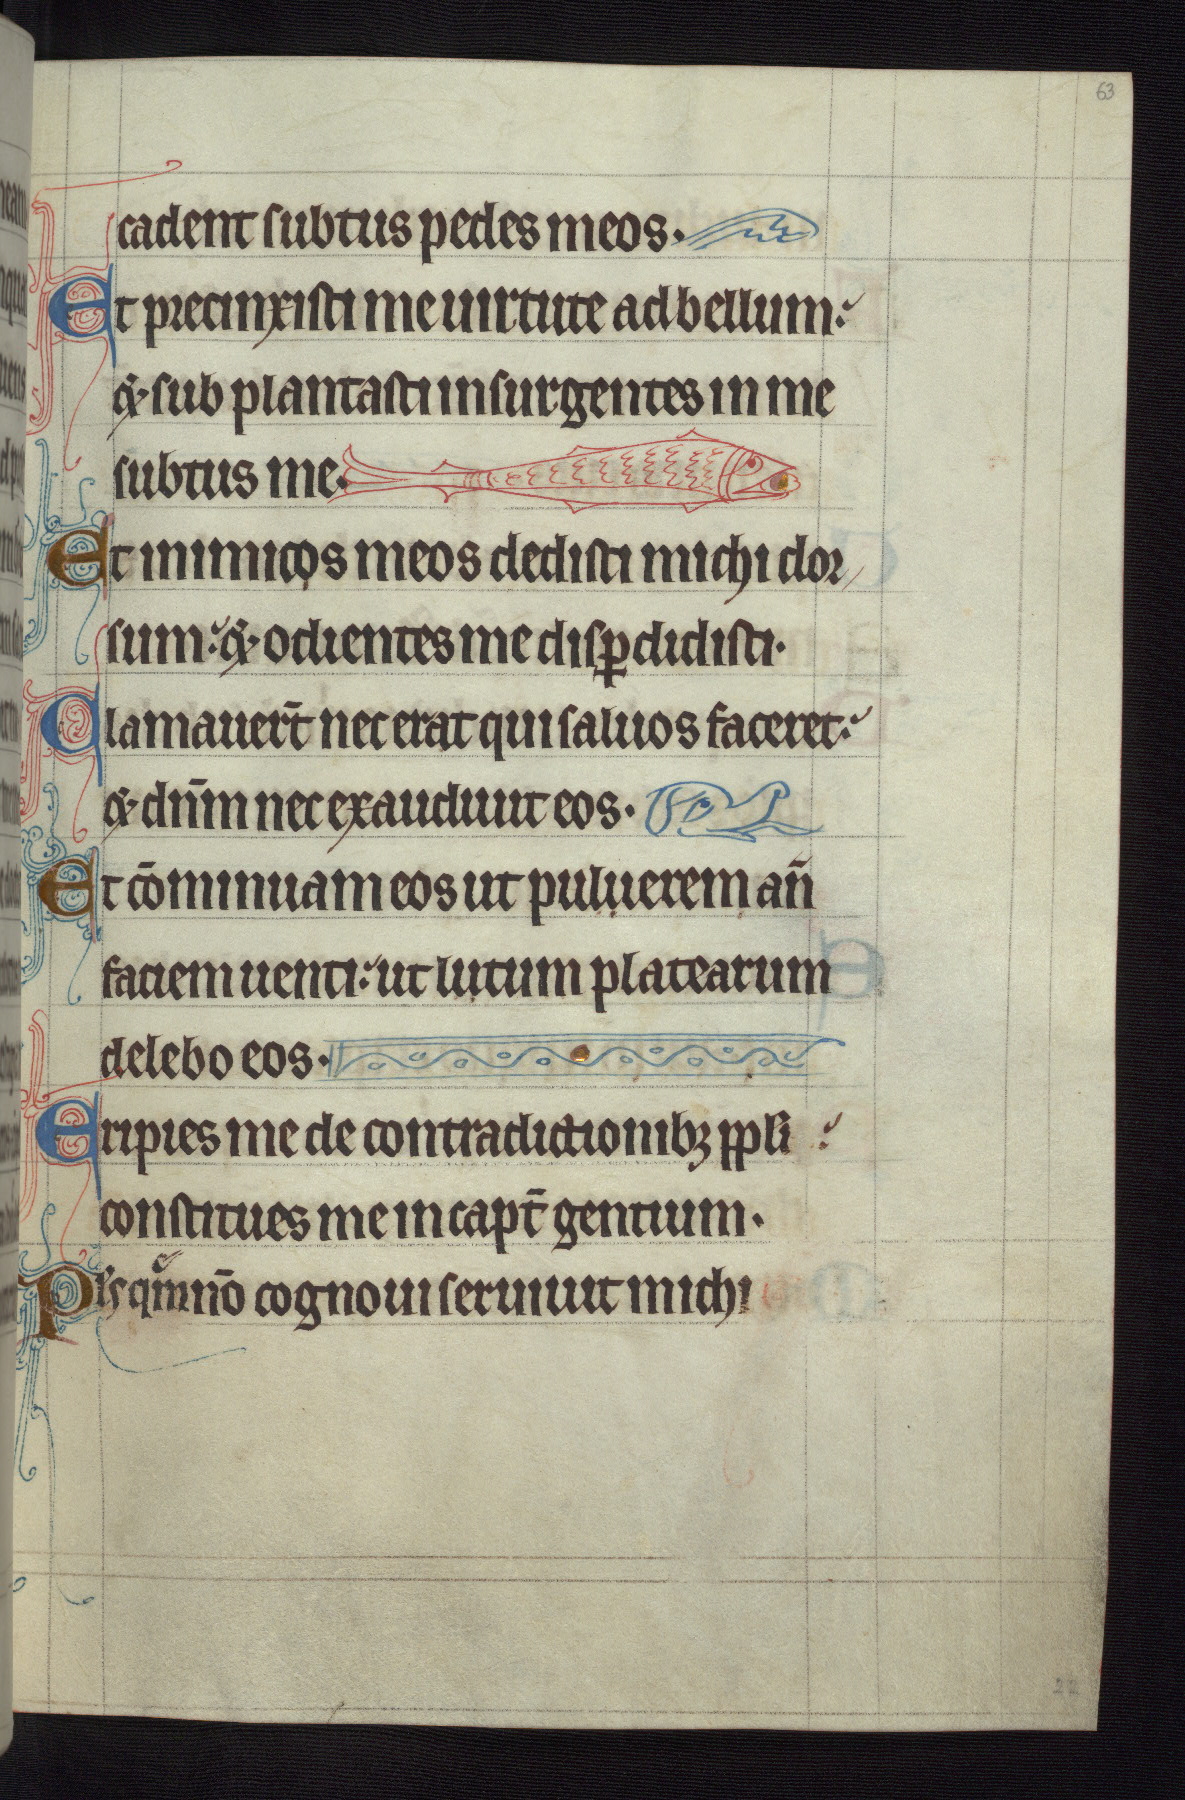 63
cadent subtus pedes meos.
Et precinxisti me uirtute ad bellum:
& sub plantasti insurgentes in me
subtus me.
Et inimicos meos dedisti michi dor
sum: & odientes me disꝑdidisti.
Clamauer̄t nec erat qui saluos faceret:
& dn̄m nec exaudiuit eos.
Et cōminuam eos ut puluerem an̄
faciem uenti: ut lutum platearum
delebo eos.
Eripies me de contradictionibꝫ ppl̄i :
constitues me in capt̄ gentium.
Pl̄s qͥm nō cognoui seruiuit michi